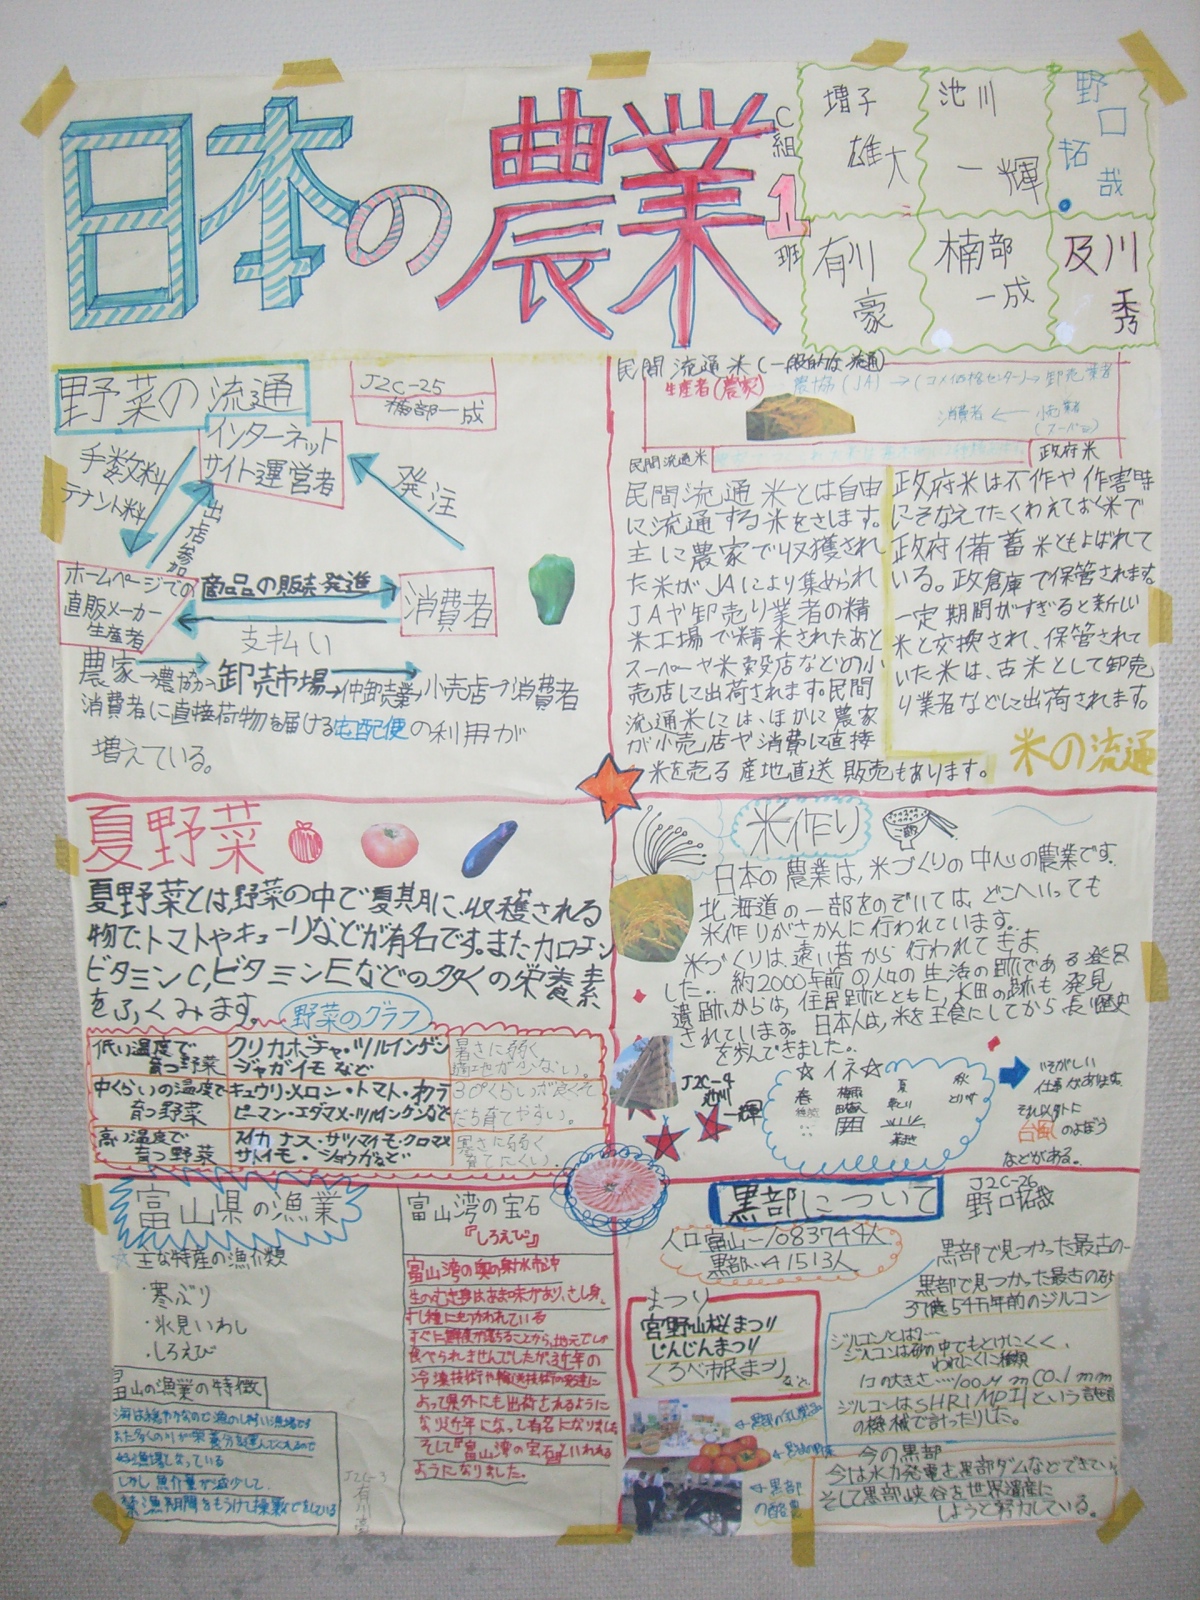 日本の農業
C組
1
班
増子
雄大
池川
一輝
野口
拓哉
有川
豪
楠部
一成
及川
秀
野菜の流通
J2C-25
楠部一成
インターネット
サイト運営者
手数料
テナント料
出店参加
発注
ホームページでの
直販メーカー
生産者
商品の販売発進
支払い
消費者
農家→農協→卸売市場→仲卸売業→小売店→消費者
消費者に直接荷物を届ける宅配便の利用が
増えている。
民間流通米(一般的な流通)
生産者(農家)
農協(JA)→(コメ価格センター)→卸売業者
消費者←小売業者
(スーパー)
民間流通米
政府米
民間流通米とは自由
に流通する米をさします。
主に農家で収獲され
た米がJAにより集められ
JAや卸売り業者の精
米工場で精米されたあと
スーペーや米穀店などの小
売店に出荷されます。民間
流通米には、ほかに農家
が小売店や消費に直接
米を売る産地直送販売もあります。
政府米は不作や作害時
にそなえてたくわえておく米で
政府備蓄米ともよばれて
いる。政倉庫で保管されます。
一定期間がすぎると新しい
米と交換され、保管されて
いた米は、古米として卸売
り業者などに出荷されます。
米の流通
夏野菜
夏野菜とは、野菜の中で夏期に、収穫される
物で、トマトやキューリなどが有名です。また、カロチン
ビタミンC,ビタミンEなどの多くの栄養素
をふくみます。
野菜のグラフ
低い温度で
育つ野菜
クリカボチャ・ツルインゲン
ジャガイモなど
暑さに弱く
中くらいの温度で
育つ野菜
キュウリ・メロン・トマト・オクラ
ピーマン・エダマメ・ツルインゲンなど
30℃くらいが良くそ
だち育てやすい。
高い温度で
育つ野菜
スイカ ナス・サツマイモ・クロマメ
サトイモ・ショウガなど
寒さに弱く
育てにくい。
米作り
日本の農業は、米づくりの中心の農業です。
北海道の一部をのぞいては、どこへいっても
米作りがさかんに行われています。
米づくりは、遠い昔から行われてきま
した。約2000年前の人々の生活の跡である登呂
遺跡からは、住居跡とともに、水田の跡も発見
されています。日本人は、米を主食にしてから長い歴史
を歩んできました。
J2C-4
池川
一輝
☆イネ☆
春
梅雨
夏
秋
いそがしい
仕事があります。
それ以外に
台風のよぼう
などがある。
富山県の漁業
☆主な特産の漁介類
・寒ぶり
・氷見いわし
・しろえび
富山の漁業の特徴
海は穏やかなので漁のし易い漁場です
また多くの川が栄養分を運んでくれるので
好漁場となっている
しかし漁介量が減少して、
禁漁期間をもうけて操業をしている
J2C-3
有川豪
富山湾の宝石
『しろえび』
富山湾の奥の射水市沖
生のむき身はあま味があり、さし身、
すし種にもつかわれている
すぐに鮮度が落ちることから、地元でしか
食べられませんでしたが、近年の
冷凍技術や輸送技術の発達に
よって県外にも出荷されるように
なり近年になって有名になりました
そして『富山湾の宝石』といわれる
ようになりました。
黒部について
J2C-26
野口拓哉
人口 富山-1083744人
黒部、41513人
まつり
宮野山桜まつり
じんじんまつり
くろべ市民まつり
など
黒部で見つかった最古の
黒部で見つかった最古の砂
37億54千年前のジルコン
ジルコンとは?…
ジルコンは砂の中でもとけにくく、
われにくい種類
1コの大きさ……100μm(0.1mm
ジルコンはSHRIMPIIという
の機械で計ったりした。
今の黒部
今は水力発電も黒部ダムなどできてい
そして黒部峡谷を世界遺産に
しようと努力している。
←黒部の乳製品
←黒部の野菜
←黒部
の酪農